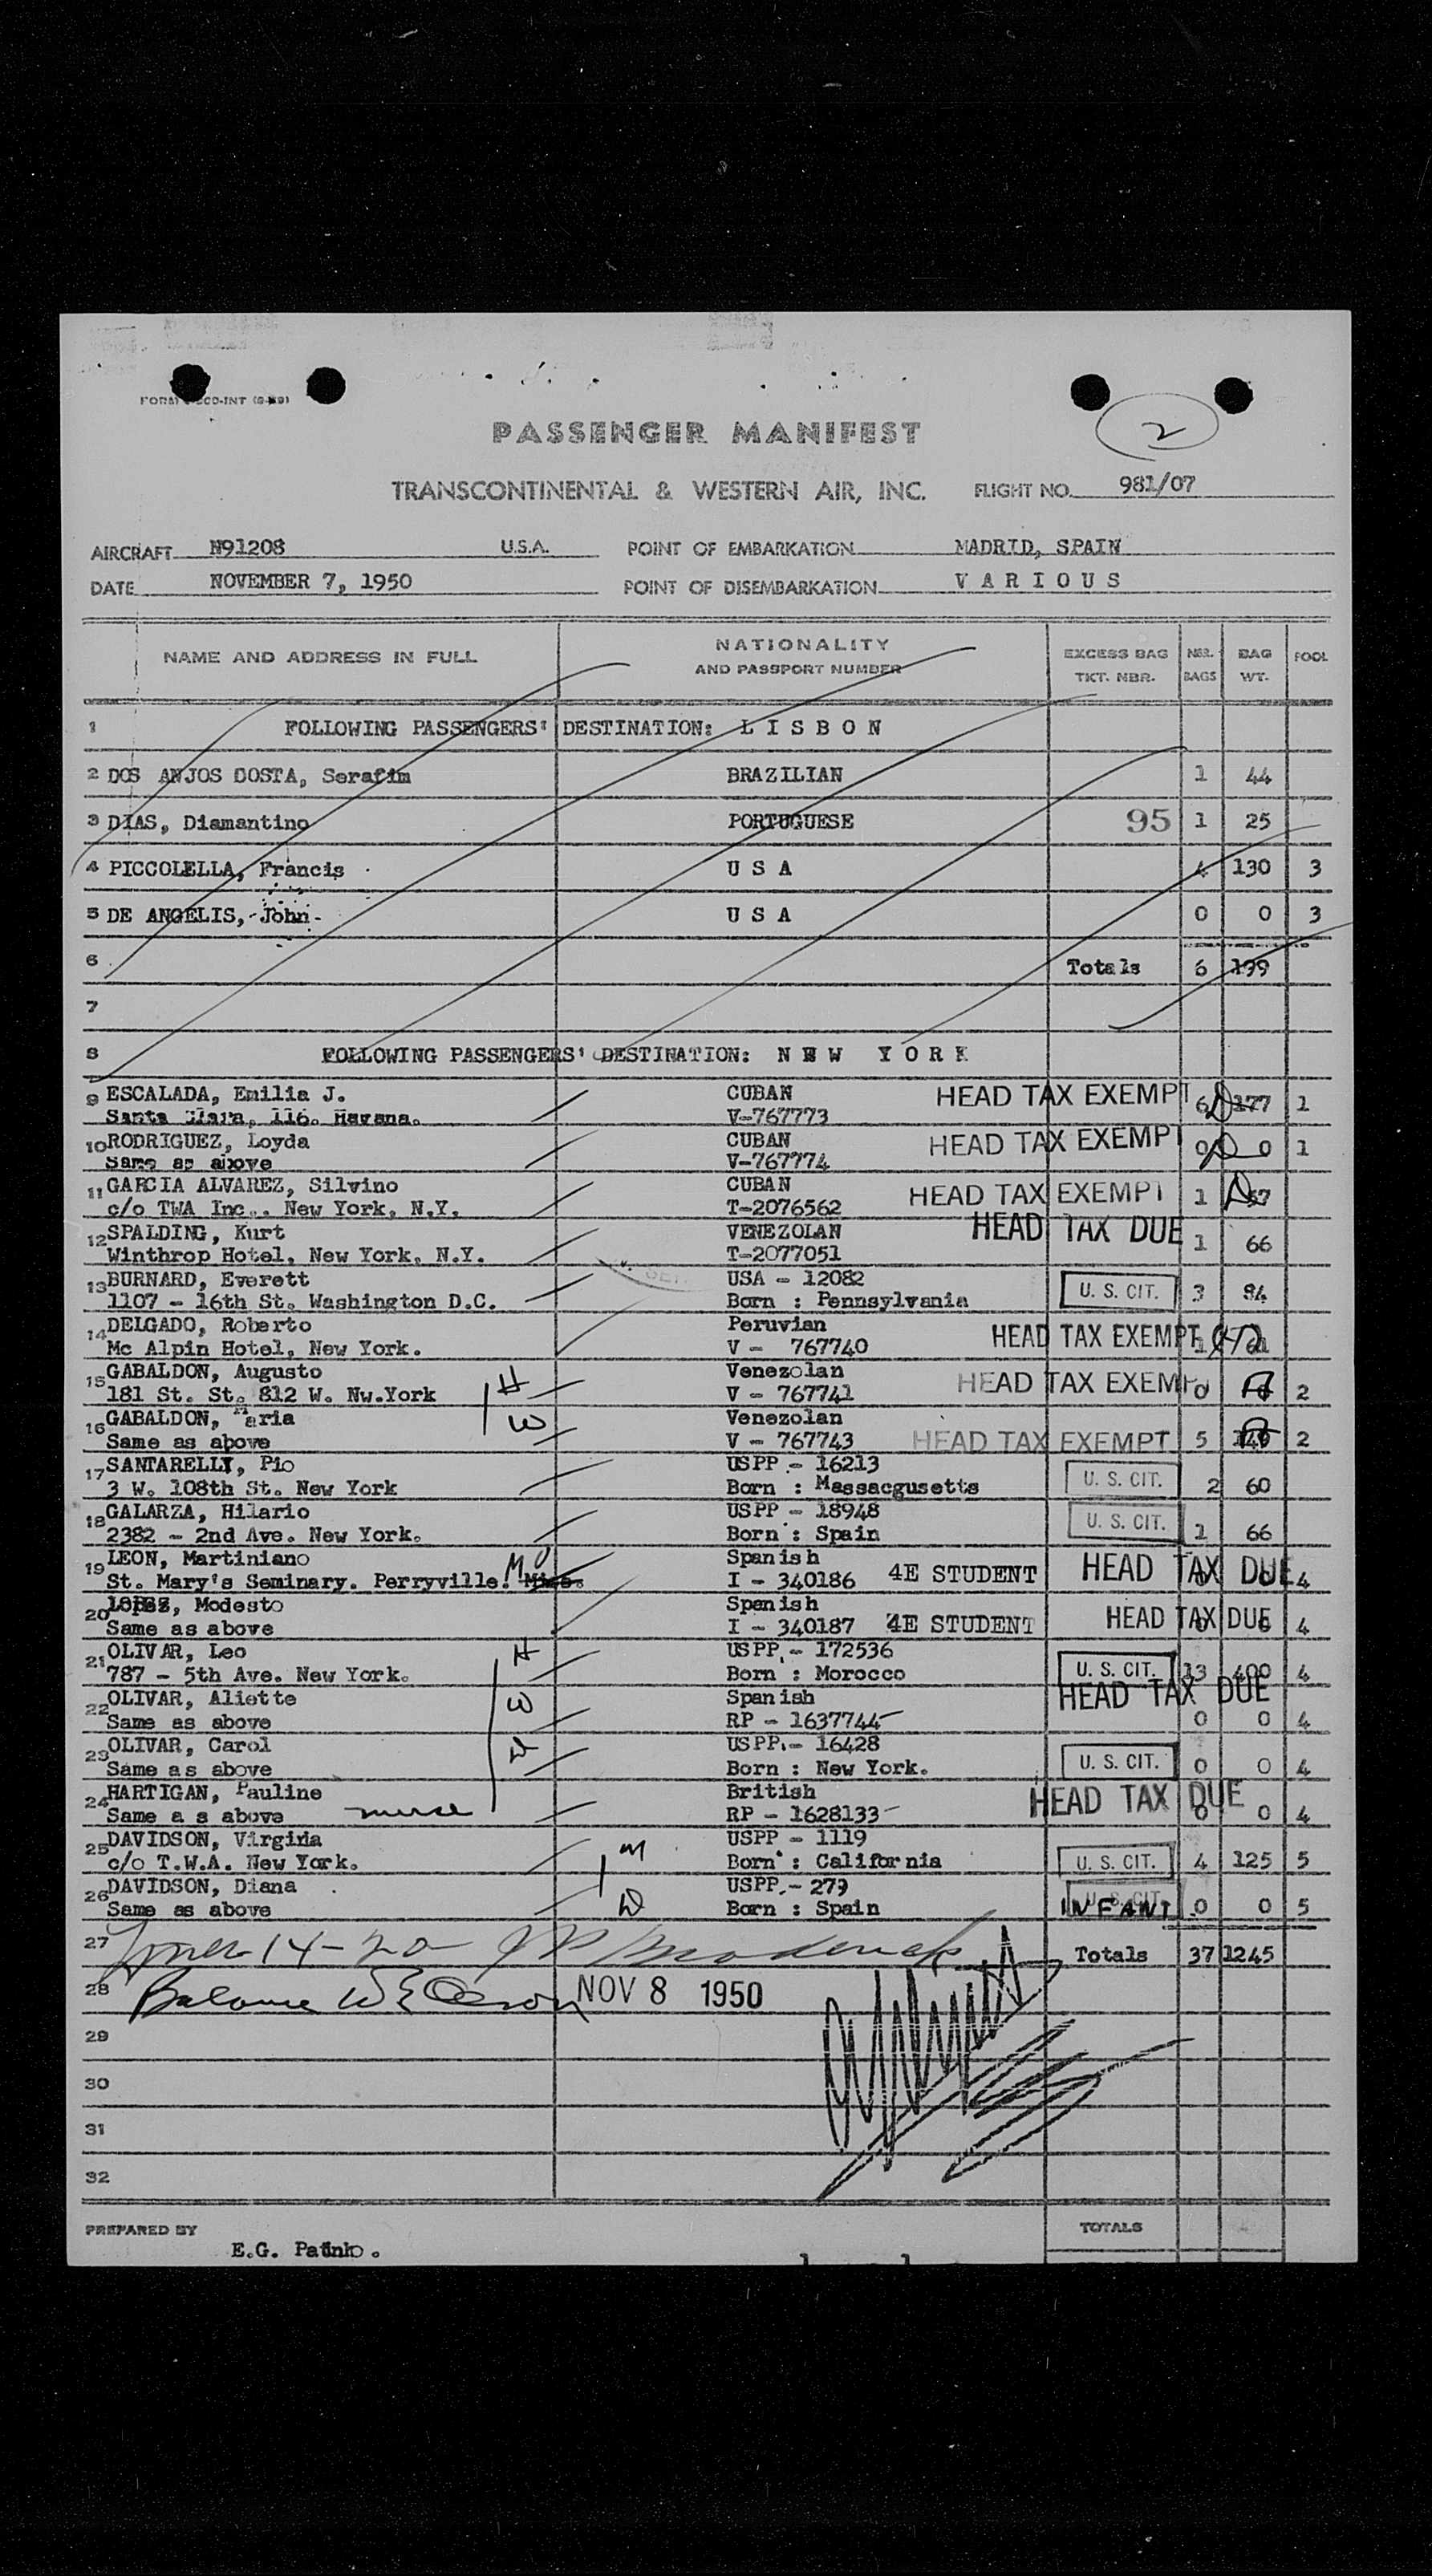 PASSENGER MANIFEST
2
TRANSCONTINENTAL & WESTERN AIR, INC. FLIGHT NO. 981/07
AIRCRAFT N91208 U.S.A. POINT OF EMBARKATION MADRID, SPAIN
DATE NOVEMBER 7, 1950 POINT OF DISEMBARKATION V A R I O U S
NAME AND ADDRESS IN FULL NATIONALITY AND PASSPORT NUMBER EXCESS BAG TKT. NBR. NBR. BAGS BAG WT. POOL
1 FOLLOWING PASSENGERS' DESTINATION: L I S B O N
2 DOS ANJOS COSTA, Serafim BRAZILIAN 1 44
3 DIAS, Diamantino PORTUGUESE 95 1 25
4 PICCOLELLA, Francis U S A 4 130 3
5 DE ANGELIS, John U S A 0 0 3
6 Totals 6 199
7
8 FOLLOWING PASSENGERS' DESTINATION: N E W Y O R K
9 ESCALADA, Emilia J. CUBAN HEAD TAX EXEMPT 6 177 1
Santa Clara, 116. Havana. V-767773
10 RODRIGUEZ, Loyda CUBAN HEAD TAX EXEMPT 0 0 1
Same as above V-767774
11 GARCIA ALVAREZ, Silvino CUBAN HEAD TAX EXEMPT 1
c/o TWA Inc., New York, N.Y. T-2076562
12 SPALDING, Kurt VENEZOLAN HEAD TAX DUE 1 66
Winthrop Hotel, New York, N.Y. T-2077051
13 BURNARD, Everett USA - 12082 U. S. CIT. 3 84
1107 - 16th St. Washington D.C. Born : Pennsylvania
14 DELGADO, Roberto Peruvian HEAD TAX EXEMPT
Mc Alpin Hotel, New York. V - 767740
15 GABALDON, Augusto H Venezolan HEAD TAX EXEMPT 0 2
181 St. St. 812 W. Nw.York V - 767741
16 GABALDON, Maria W Venezolan HEAD TAX EXEMPT 5 2
Same as above V - 767743
17 SANTARELLI, Pio USPP - 16213 U. S. CIT. 2 60
3 W. 108th St. New York Born : Massacgusetts
18 GALARZA, Hilario USPP - 18948 U. S. CIT. 1 66
2382 - 2nd Ave. New York. Born : Spain
19 LEON, Martiniano MO Spanish 4E STUDENT HEAD TAX DUE 4
St. Mary's Seminary. Perryville. Miss. I - 340186
20 LOPEZ, Modesto Spanish 4E STUDENT HEAD TAX DUE 4
Same as above I - 340187
21 OLIVAR, Leo H USPP - 172536 U. S. CIT. 13 400 4
787 - 5th Ave. New York. Born : Morocco
22 OLIVAR, Aliette W Spanish HEAD TAX DUE 0 0 4
Same as above RP - 1637744
23 OLIVAR, Carol D USPP - 16428 U. S. CIT. 0 0 4
Same as above Born : New York.
24 HARTIGAN, Pauline British HEAD TAX DUE 0 0 4
Same a s above nurse RP - 1628133
25 DAVIDSON, Virginia M USPP - 1119 U. S. CIT. 4 125 5
c/o T.W.A. New York. Born : California
26 DAVIDSON, Diana D USPP - 279 U. S. CIT. INFANT 0 0 5
Same as above Born : Spain
27 14-20 Totals 37 1245
28 Balance NOV 8 1950
29
30
31
32
PREPARED BY TOTALS
E.G.